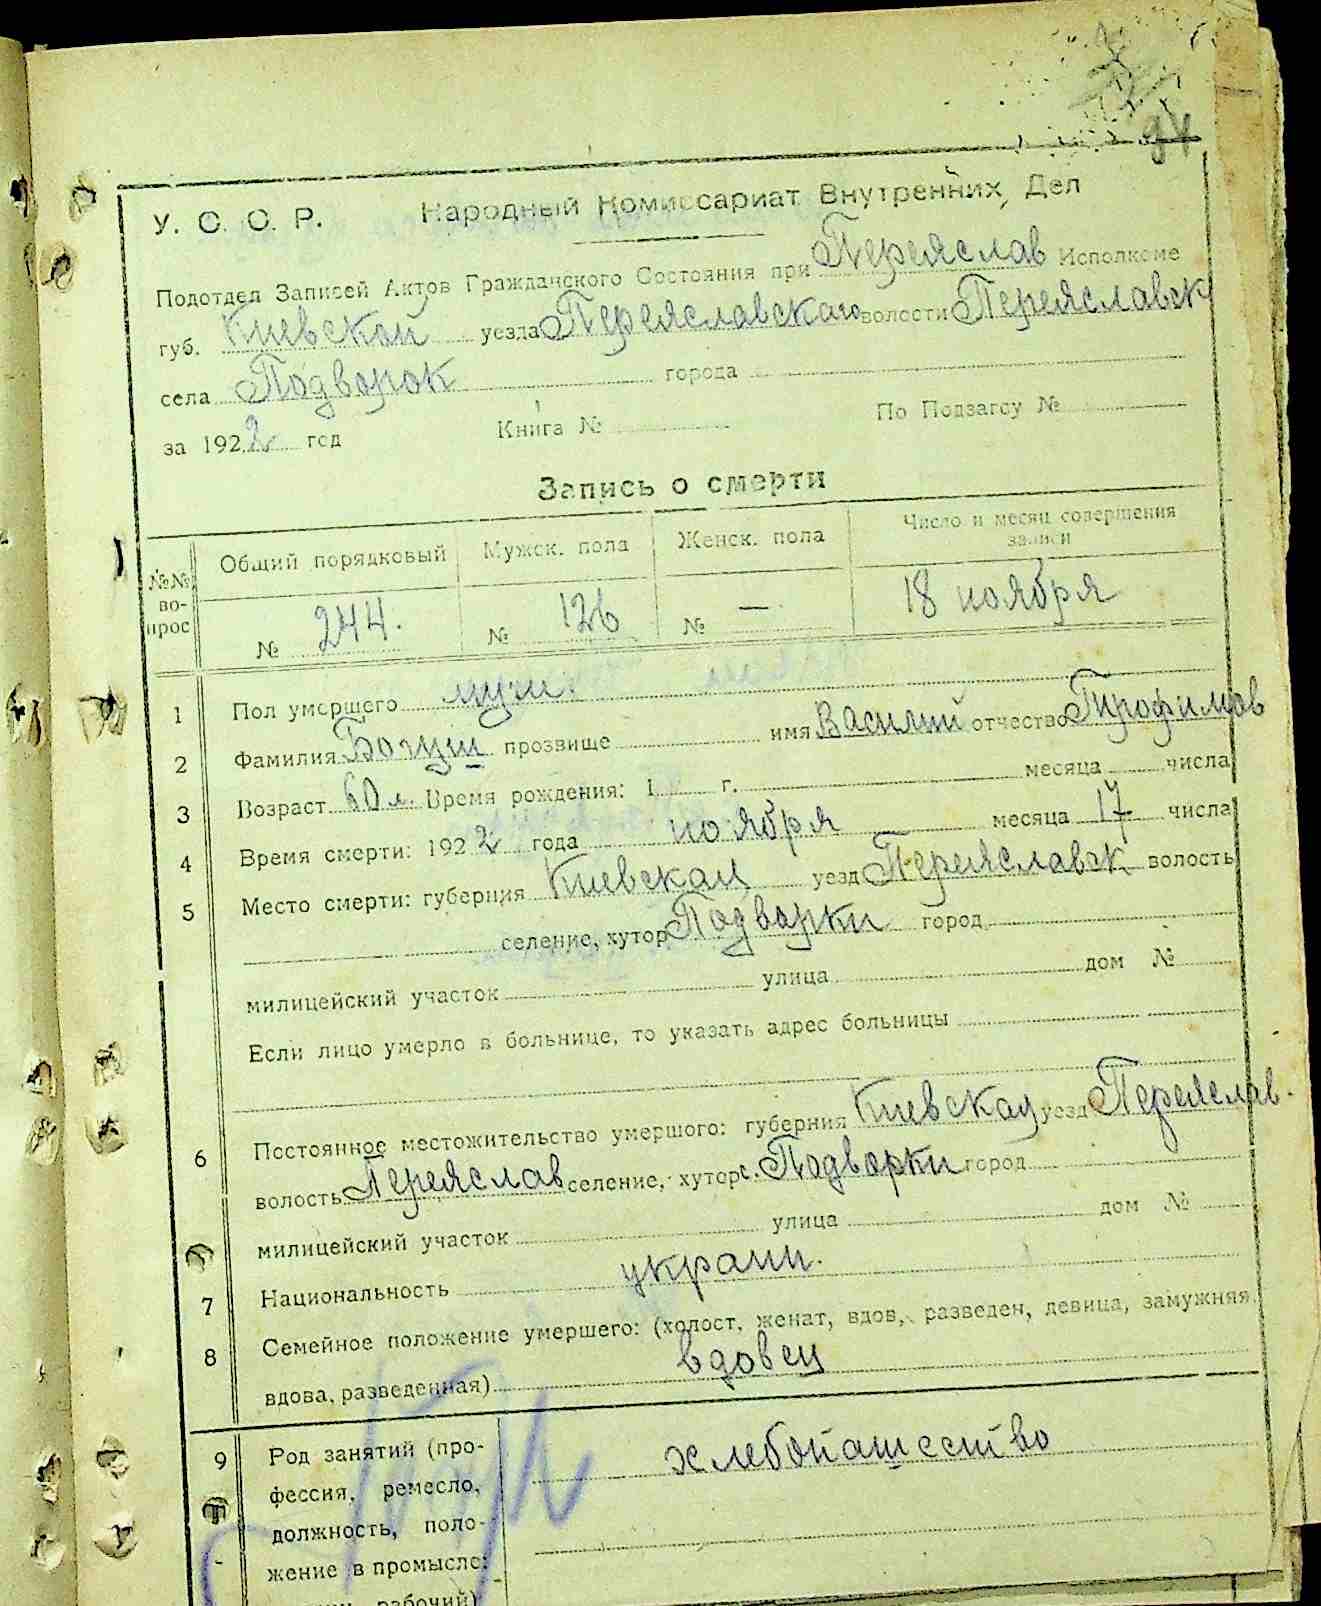 94
У. С. С. Р. Народный Комиссариат Внутренних Дел
Подотдел Записей Актов Гражданского Состояния при Переяслав Исполкоме
губ. Киевской уезда Переяславскаго волости Переяславск
села Подворок города
за 1922 год Книга № По Подзагсу №
Запись о смерти
№№ вопрос Общий порядковый Мужск. пола Женск. пола Число и месяц совершения записи
№ 244. № 126 № — 18 ноября
1 Пол умершего муж.
2 Фамилия Богуш прозвище имя Василий отчество Трофимов
3 Возраст 60 л. Время рождения: 1 г. месяца числа
4 Время смерти: 1922 года ноября месяца 17 числа
5 Место смерти: губерния Киевская уезд Переяславск волость
селение, хутор Подворки город
милицейский участок улица дом №
Если лицо умерло в больнице, то указать адрес больницы
6 Постоянное местожительство умершого: губерния Киевская уезд Переяслав.
волость Переяслав селение, хутор с. Подворки город
милицейский участок улица дом №
7 Национальность украин.
8 Семейное положение умершего: (холост, женат, вдов, разведен, девица, замужняя,
вдова, разведенная) вдовец
9 Род занятий (про- хлебопашество
фессия, ремесло,
должность, поло-
жение в промысле:
рабочий)